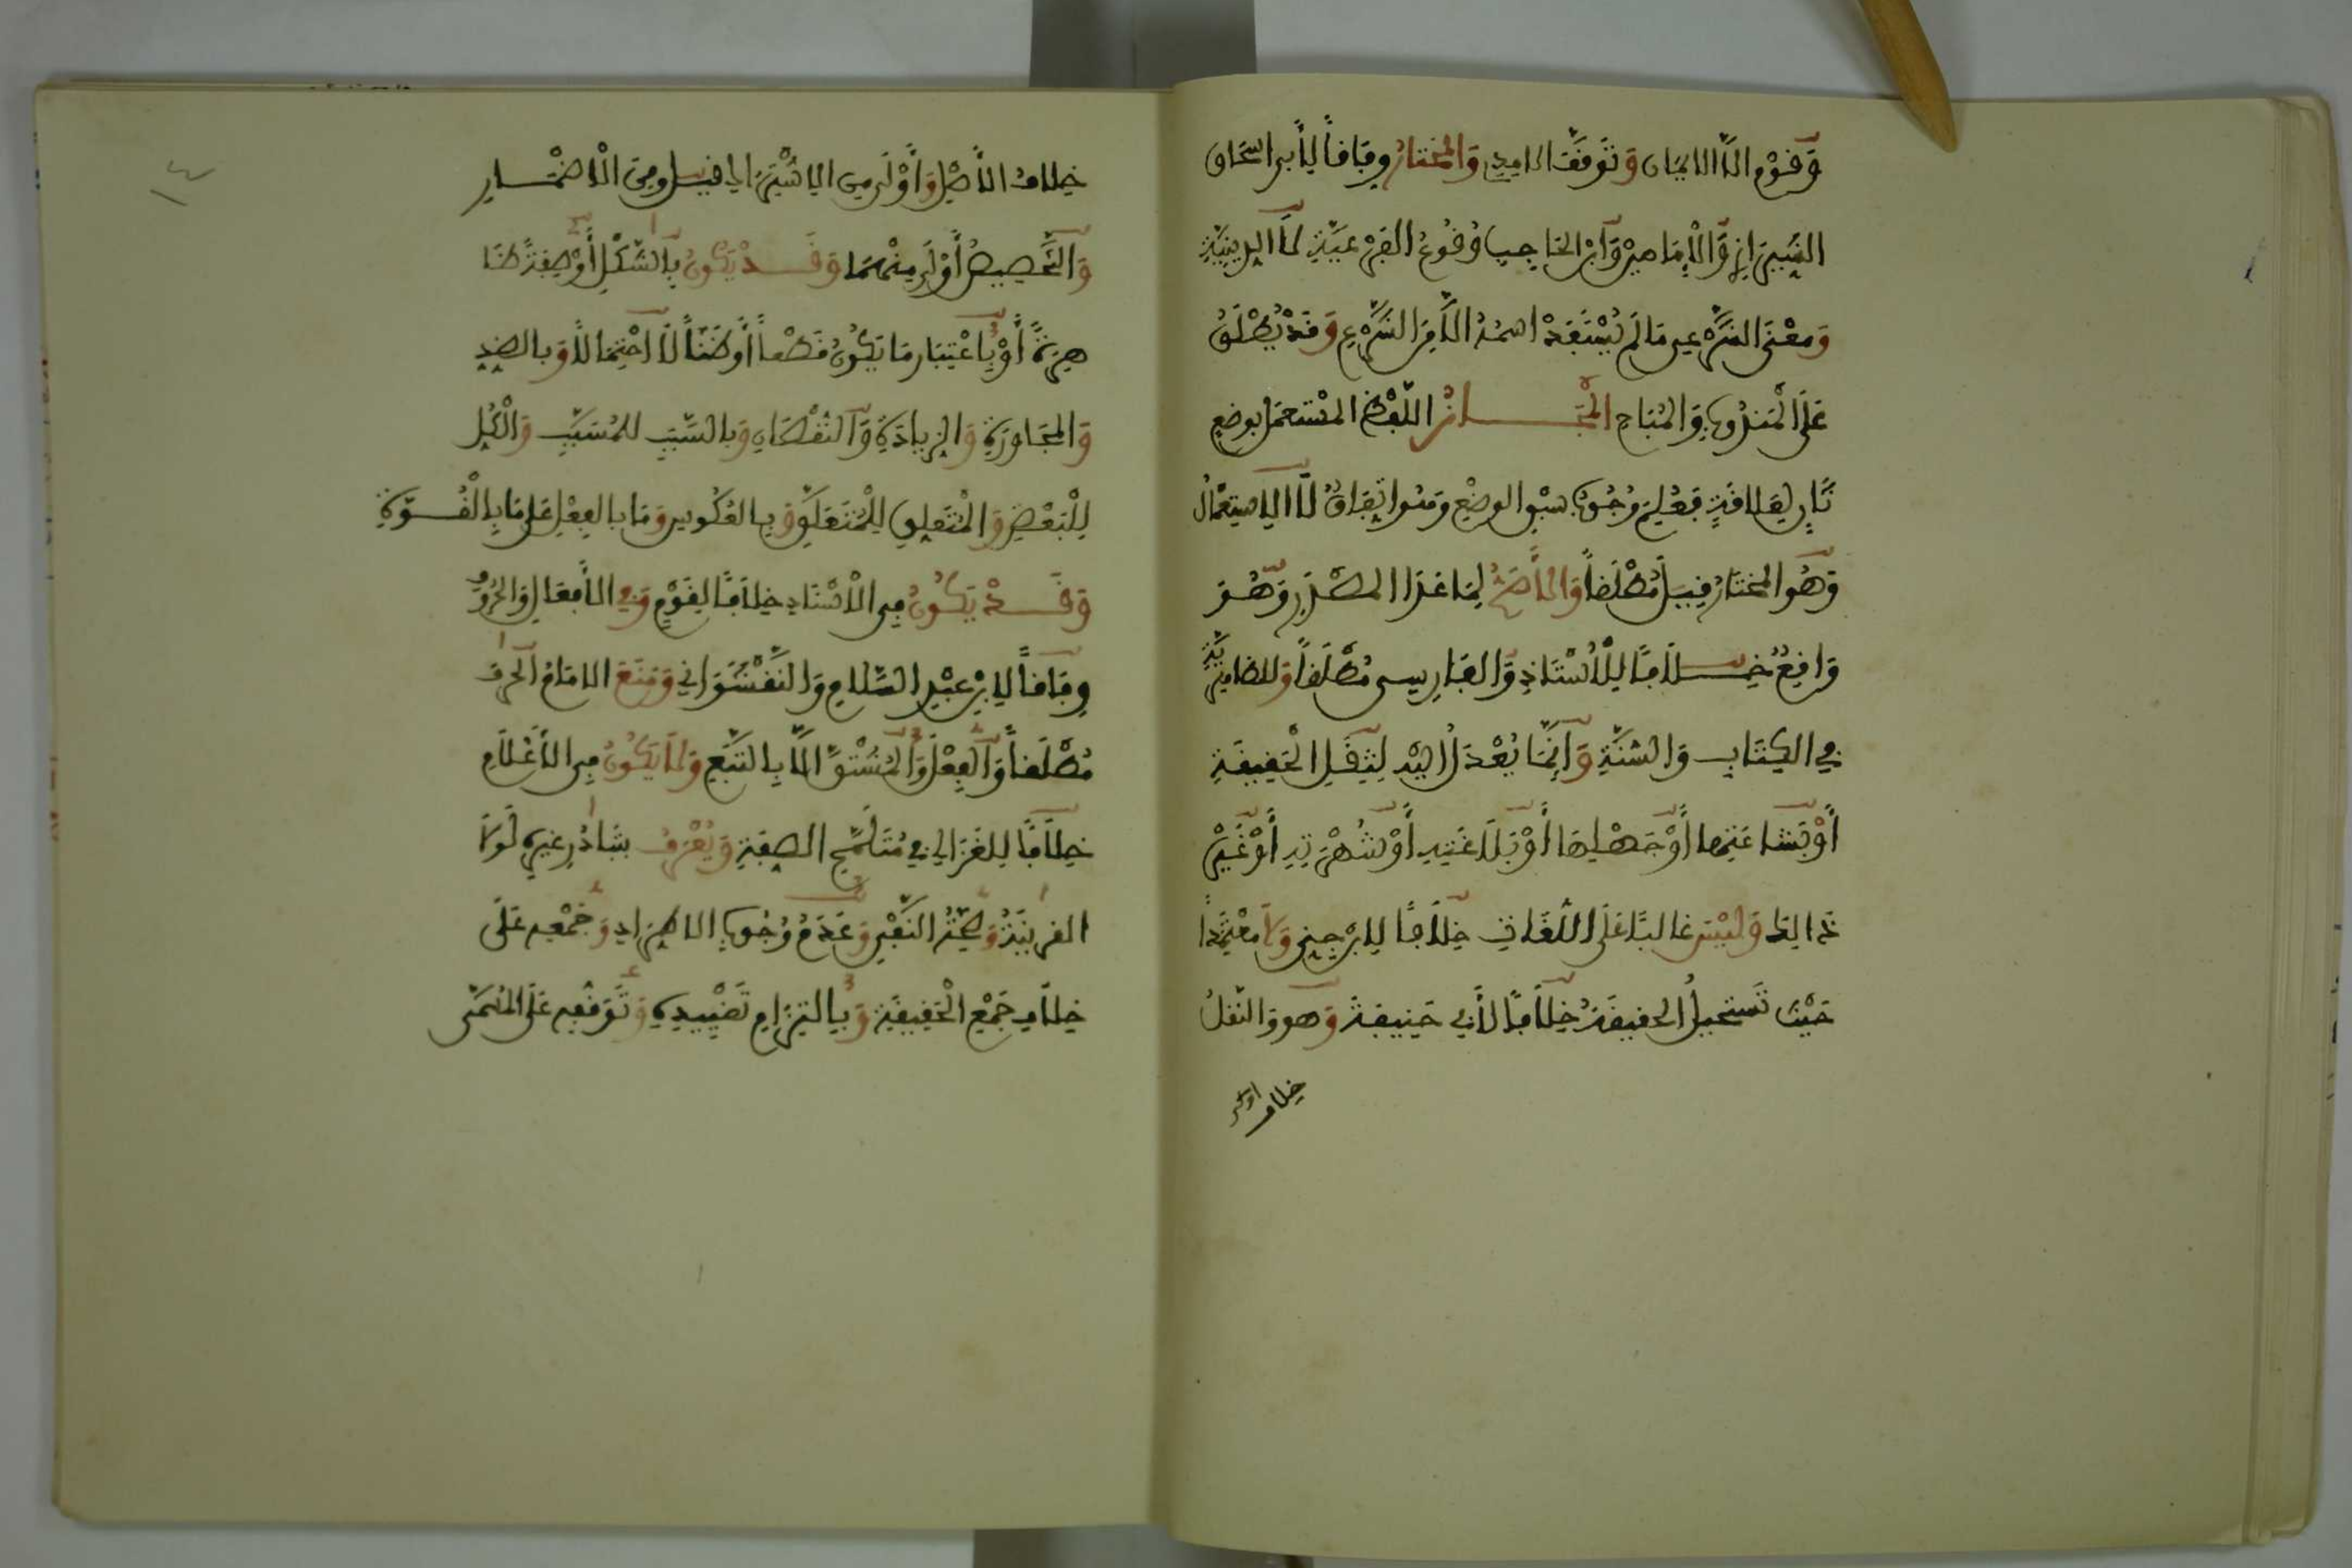 وَقَوْمٌ إِلَّا الايمان وَتَوَقَّفَ الامِدِي وَالمختارُ وِفَاقاً لِأَبي اسحاق
الشِّيرَازِي وَالْإِمَامَيْنِ وَابْنِ الحَاجِبِ وُقُوعُ الفَرْعِيَّةِ لَا الدِّينِيَّةِ
وَمَعْنَى الشَّرْعِي مَا لَمْ يُسْتَفَدْ اسْمُهُ إِلَّا مِنَ الشَّرْعِ وَقَدْ يُطْلَقُ
عَلَى الْمَنْدُوبِ وَالْمُبَاحِ الْمَجَازُ اللَّفْظُ المُسْتَعمَل بوضعٍ
ثَانٍ لِعَلَاقَةٍ فَعُلِمَ وُجُوبُ سَبْقِ الوضْعِ وَهُوَ اتِّفَاقٌ لَا الِاسْتِعْمَالُ
وَهُوَ المختَارُ قِيلَ مُطْلَقاً وَالْأَصَحُّ لِمَا عَدَا المَصْدَرِ وَهُوَ
وَاقِعٌ خِلَافاً لِلْأُسْتَاذِ وَالفَارِسِي مُطْلَقاً وَلِلظاهِرِيَّةِ
فِي الكِتَابِ وَالسُّنَّةِ وَإِنَّمَا يُعْدَلُ إِلَيْهِ لِثِقَلِ الْحَقِيقَةِ
أَوْ بَشَاعَتِهَا أَوْ جَهْلِهَا أَوْ بَلَاغَتِهِ أَوْ شُهْرَتِهِ أَوْ غَيْرِ
ذَالِكَ وَلَيْسَ غَالِبًا عَلَى اللُّغَاتِ خِلَافًا لِابْنِ جِنِي وَلَا مُعْتَمَدًا
حَيْثُ تَستَحِيلُ الحَقِيقَةُ خِلَافًا لِأَبِي حَنِيفَةَ وَهو وَالنَّقْلُ
خِلَافُ الأصْلِ وَأَوْلَى مِنَ الِاشْتِرَاكِ قِيلَ وَمِنَ الْإِضْمَارِ
وَالتَّخْصِيصُ أَوْلَى مِنْهُمَا وَقَدْ يَكُونُ بِالشَّكْلِ أَوْ صِفَةٍ ظَا
هِرَةٍ أَوْ بِاعْتِبَارِ مَا يَكُونُ قَطْعاً أَوْ ظَنّاً لَا احْتِمَالاً وَبِالضِّدِ
وَالْمُجَاوَرَةِ وَالزِيَادَةِ وَالنُّقْصَانِ وَبِالسَّبَبِ لِلْمُسَبَّبِ وَالْكُلِ
لِلْبَعْضِ وَالْمُتَعَلِّقِ لِلْمُتَعَلَّقِ وَبِالعُكُوسِ وَمَا بِالفِعْلِ عَلَى مَا بِالْقُوَّةِ
وَقَدْ يَكُونُ فِي الْإِسْنَادِ خِلَافًا لِقَوْمٍ وَفِي الْأَفْعَالِ وَالحُرُوفِ
وِفَاقاً لِابْنِ عَبْدِ السَّلَامِ وَالنَّقْشَوَانِي وَمَنَعَ الامَامُ الحَرْفَ
مُطْلَقاً وَالفِعْلَ وَالمُشْتَقَّ إِلَّا بِالتَّبَعِ وَلَا يَكُونُ فِي الْأَعْلَامِ
خِلَافًا لِلغَزَالِي فِي مُتَلَمَّحِ الصِفَةِ وَيُعْرَفُ بِتَبَادُرِ غَيْرِهِ لَوْلَا
القَرِينَةُ وَصِحَّةُ النَّفْيِ وَعَدَمُ وُجُوبِ الِاطِّرَادِ وَجَمْعِهِ عَلَى
خِلَافِ جَمْعِ الْحَقِيقَةِ وَبِالتِزَامِ تَقْيِيدِهِ وَتَوَقُّفِهِ عَلَى المُسَمَّى